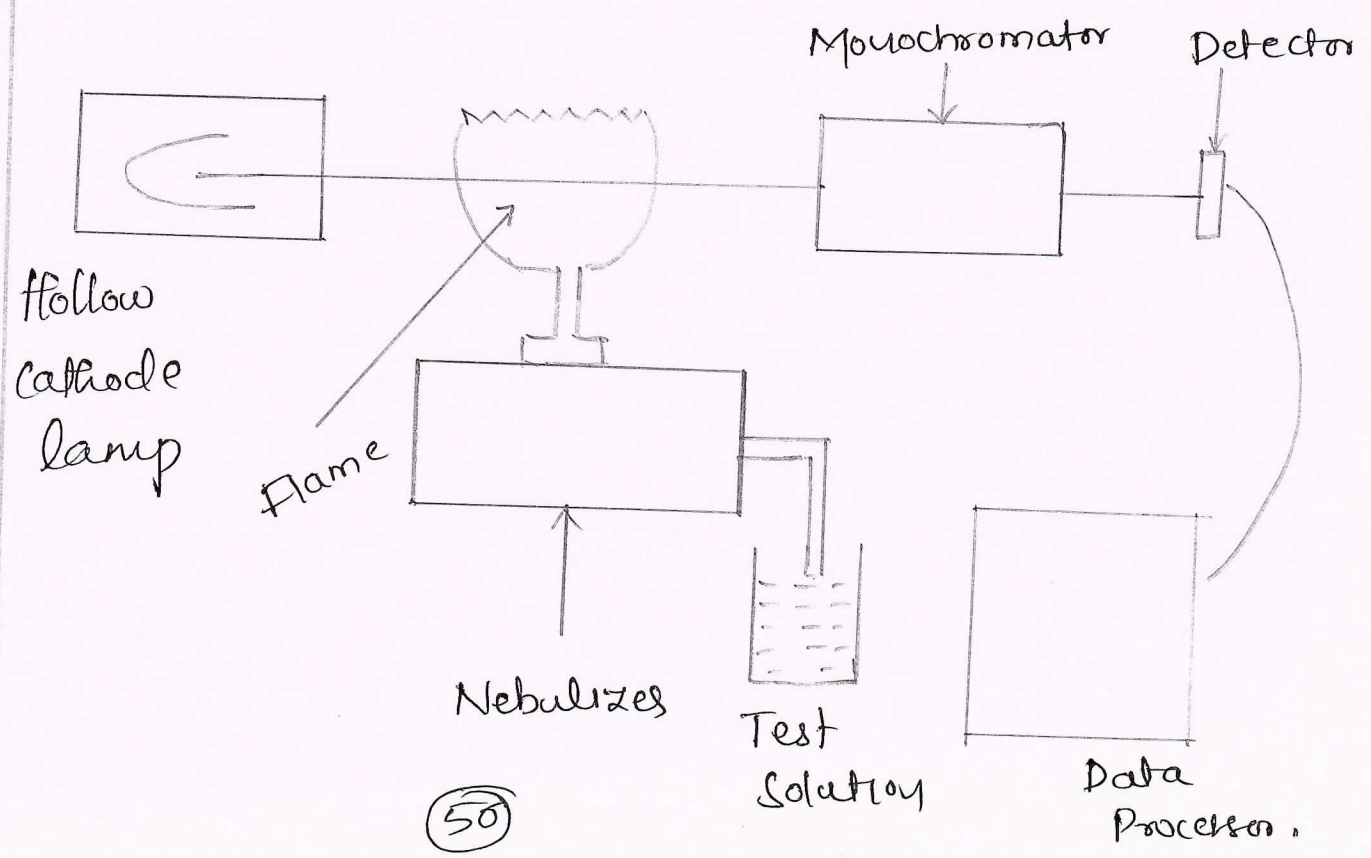 Monochromator
Detector
Hollow
Cathode
lamp
Flame
Nebulizer
Test
Solution
Data
Processor.
50